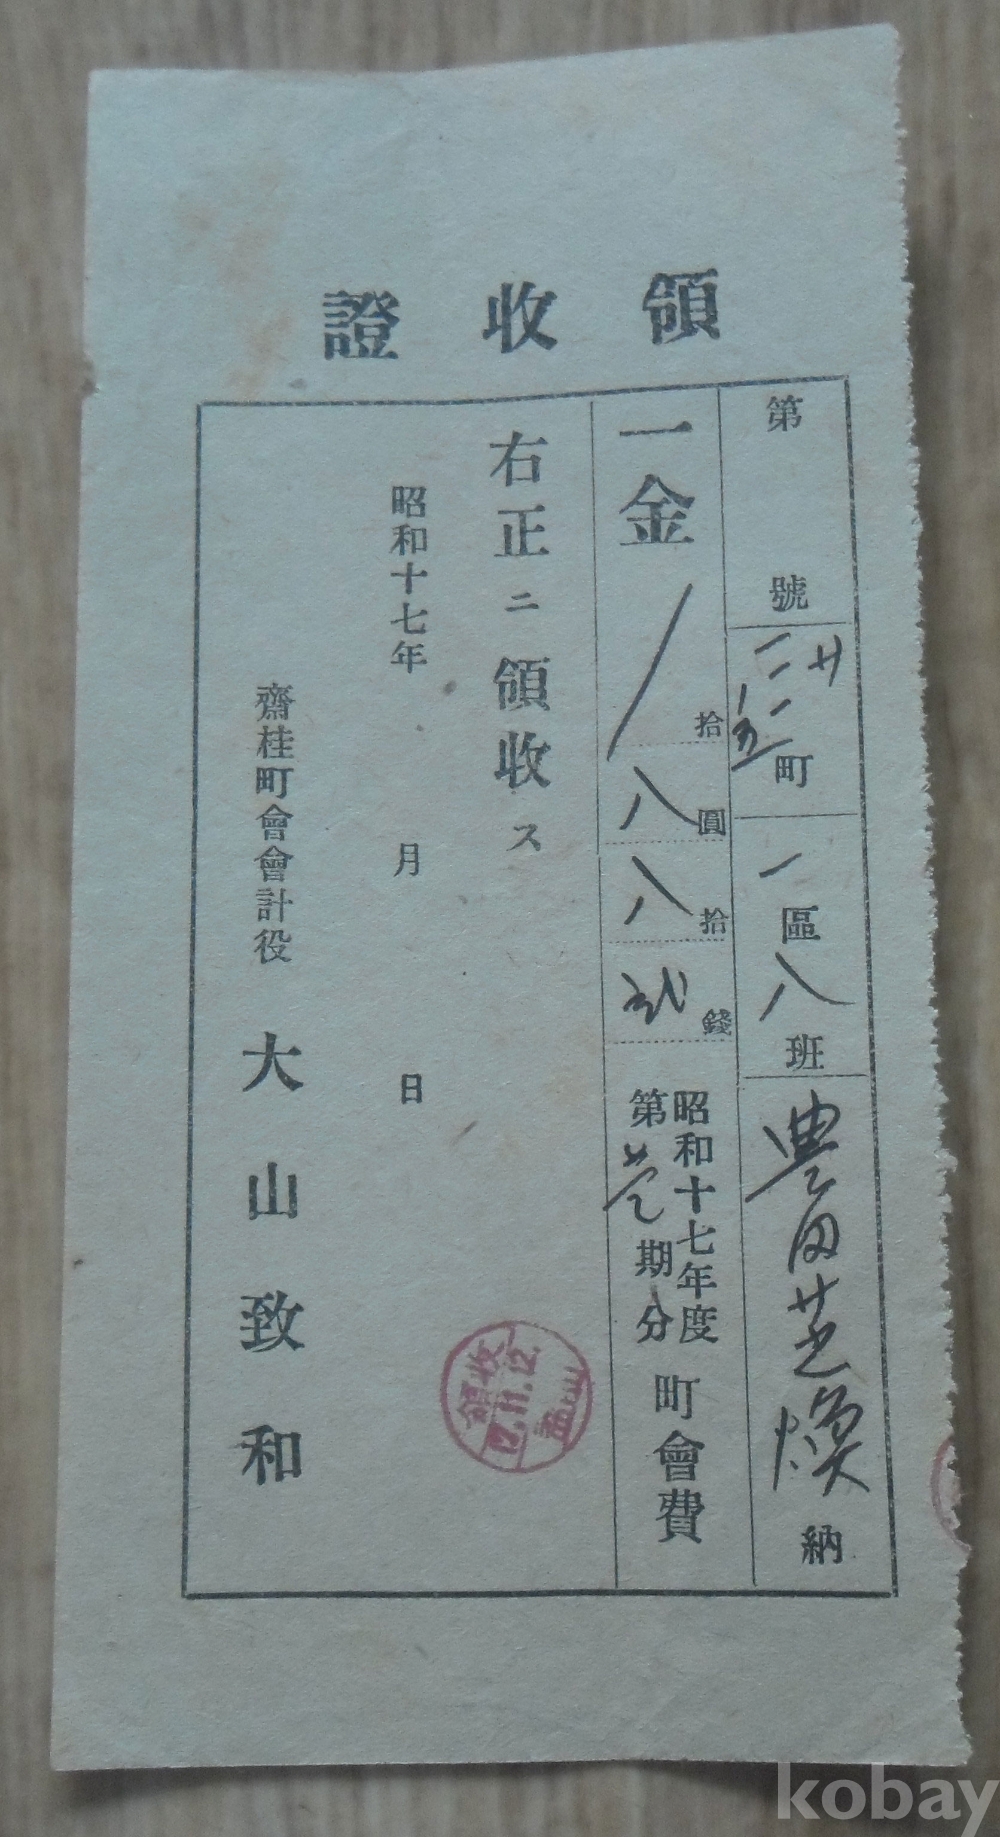 領收證
第 號
町 一區八班 豊田芝煥 納
一金 拾八圓八拾弐錢
昭和十七年度
第壱期分
町會費
右正ニ領收ス
昭和十七年 月 日
齋桂町會會計役 大山致和
領收
17.11.12.
kobay